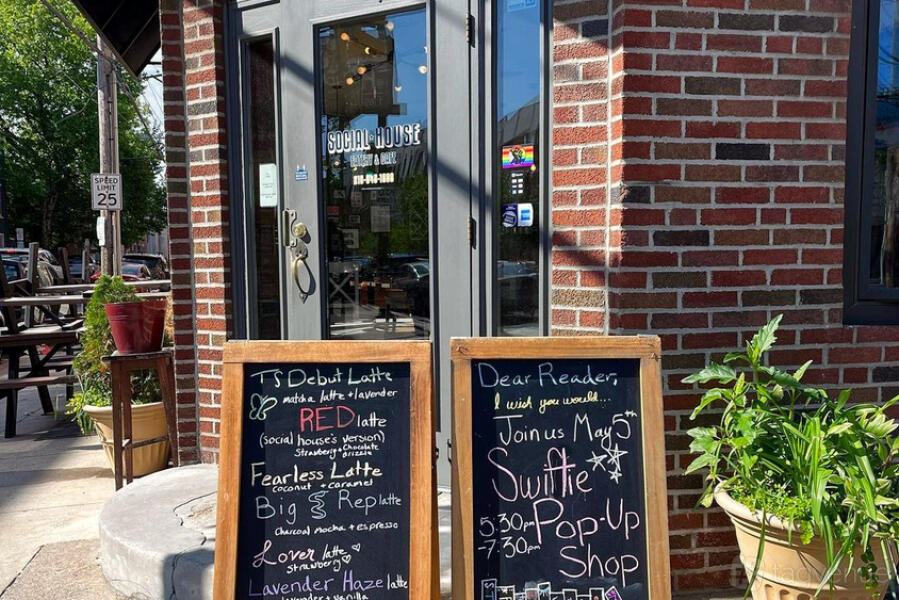 SOCIAL·HOUSE
EATERY & CAFE
SPEED
LIMIT
25
TS Debut Latte
matcha latte + lavender
RED latte
(social house's version)
Strawberry + Chocolate
Drizzle
Fearless Latte
coconut + caramel
Big Rep latte
charcoal mocha + espresso
Lover latte
strawberry
Lavender Haze latte
lavender + vanilla
Dear Reader,
I wish you would...
Join us May 5th
Swiftie
Pop-Up
Shop
5:30pm
-7:30pm